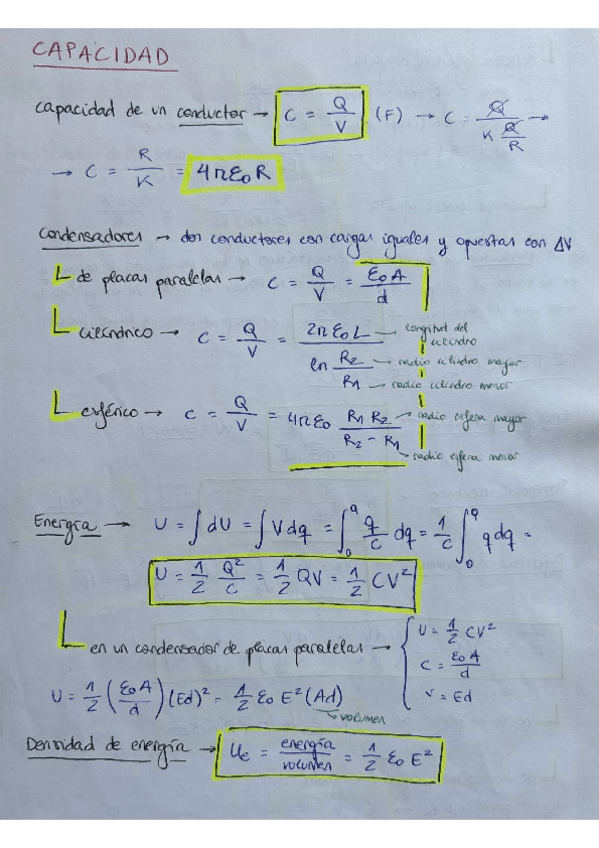 CAPACIDAD
capacidad de un conductor → C = Q/V (F) → C = Q/(K Q/R) →
→ C = R/K = 4πε₀R
Condensadores → dos conductores con cargas iguales y opuestas con ΔV
de placas paralelas → C = Q/V = ε₀A/d
cilíndrico → C = Q/V = 2πε₀L / ln R₂/R₁
longitud del cilindro
radio cilindro mayor
radio cilindro menor
esférico → C = Q/V = 4πε₀ R₁R₂/(R₂ - R₁)
radio esfera mayor
radio esfera menor
Energía → U = ∫dU = ∫Vdq = ∫₀^Q q/C dq = 1/C ∫₀^Q q dq =
U = 1/2 Q²/C = 1/2 QV = 1/2 CV²
en un condensador de placas paralelas → { U = 1/2 CV²
C = ε₀A/d
V = Ed
U = 1/2 (ε₀A/d)(Ed)² = 1/2 ε₀E²(Ad)
volumen
Densidad de energía → Ue = energía/volumen = 1/2 ε₀E²